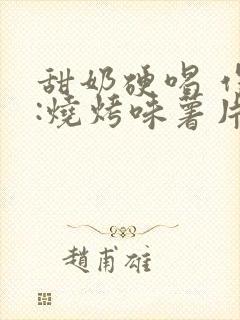 甜奶硬唱
:燒烤味薯片
趙甫雄